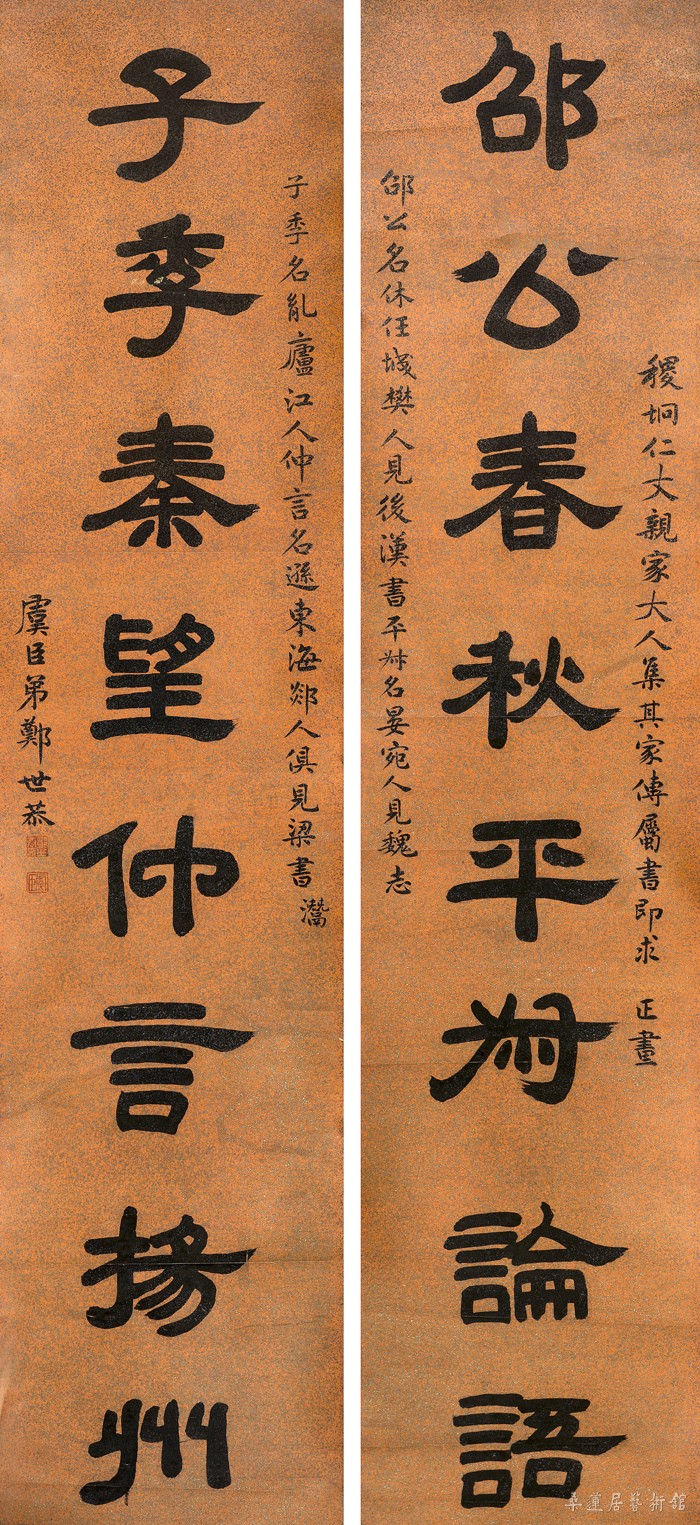 稷坰仁丈親家大人集其家傳屬書即求 正畫
邵公春秋平叔論語
邵公名休任城樊人見後漢書平叔名晏宛人見魏志
子季名胤廬江人仲言名遜東海郯人俱見梁書 灊
子季秦望仲言揚州
虞臣弟鄭世恭
桑蓮居藝術館